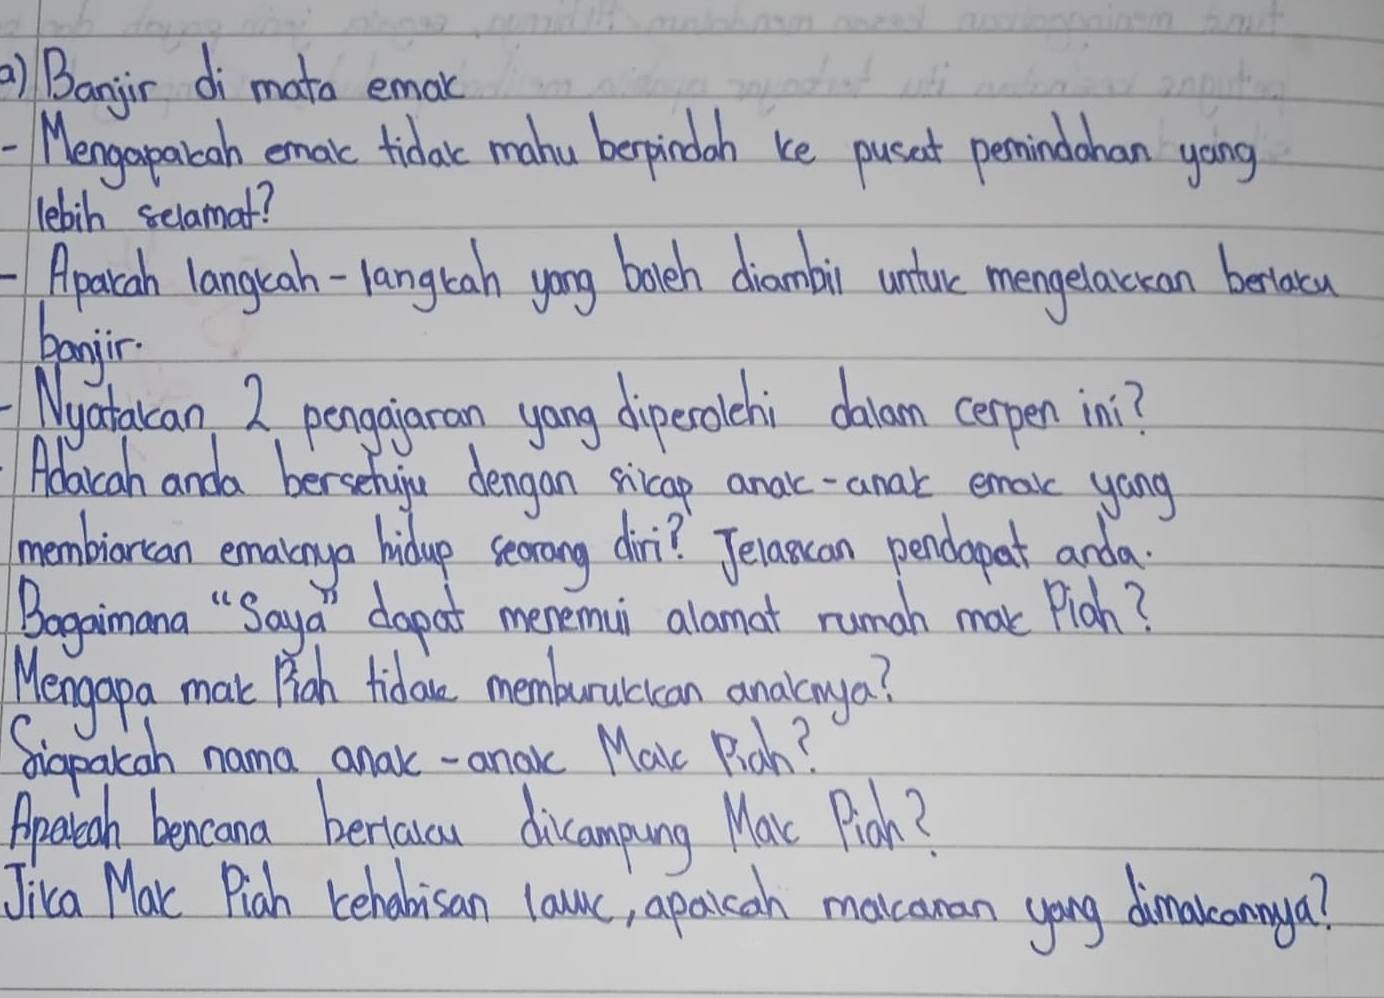 a) Banjir di mata emak
- Mengapakah emak tidak mahu berpindah ke pusat pemindahan yang
lebih selamat?
- Apakah langkah-langkah yang boleh diambil untuk mengelakkan berlaku
banjir.
- Nyatakan 2 pengajaran yang diperolehi dalam cerpen ini?
- Adakah anda bersetuju dengan sikap anak-anak emak yang
membiarkan emaknya hidup seorang diri? Jelaskan pendapat anda.
Bagaimana "Saya" dapat menemui alamat rumah mak Piah?
Mengapa mak Piah tidak memburukkan anaknya?
Siapakah nama anak-anak Mak Piah?
Apakah bencana berlaku dikampung Mak Piah?
Jika Mak Piah kehabisan lauk, apakah makanan yang dimakannya?